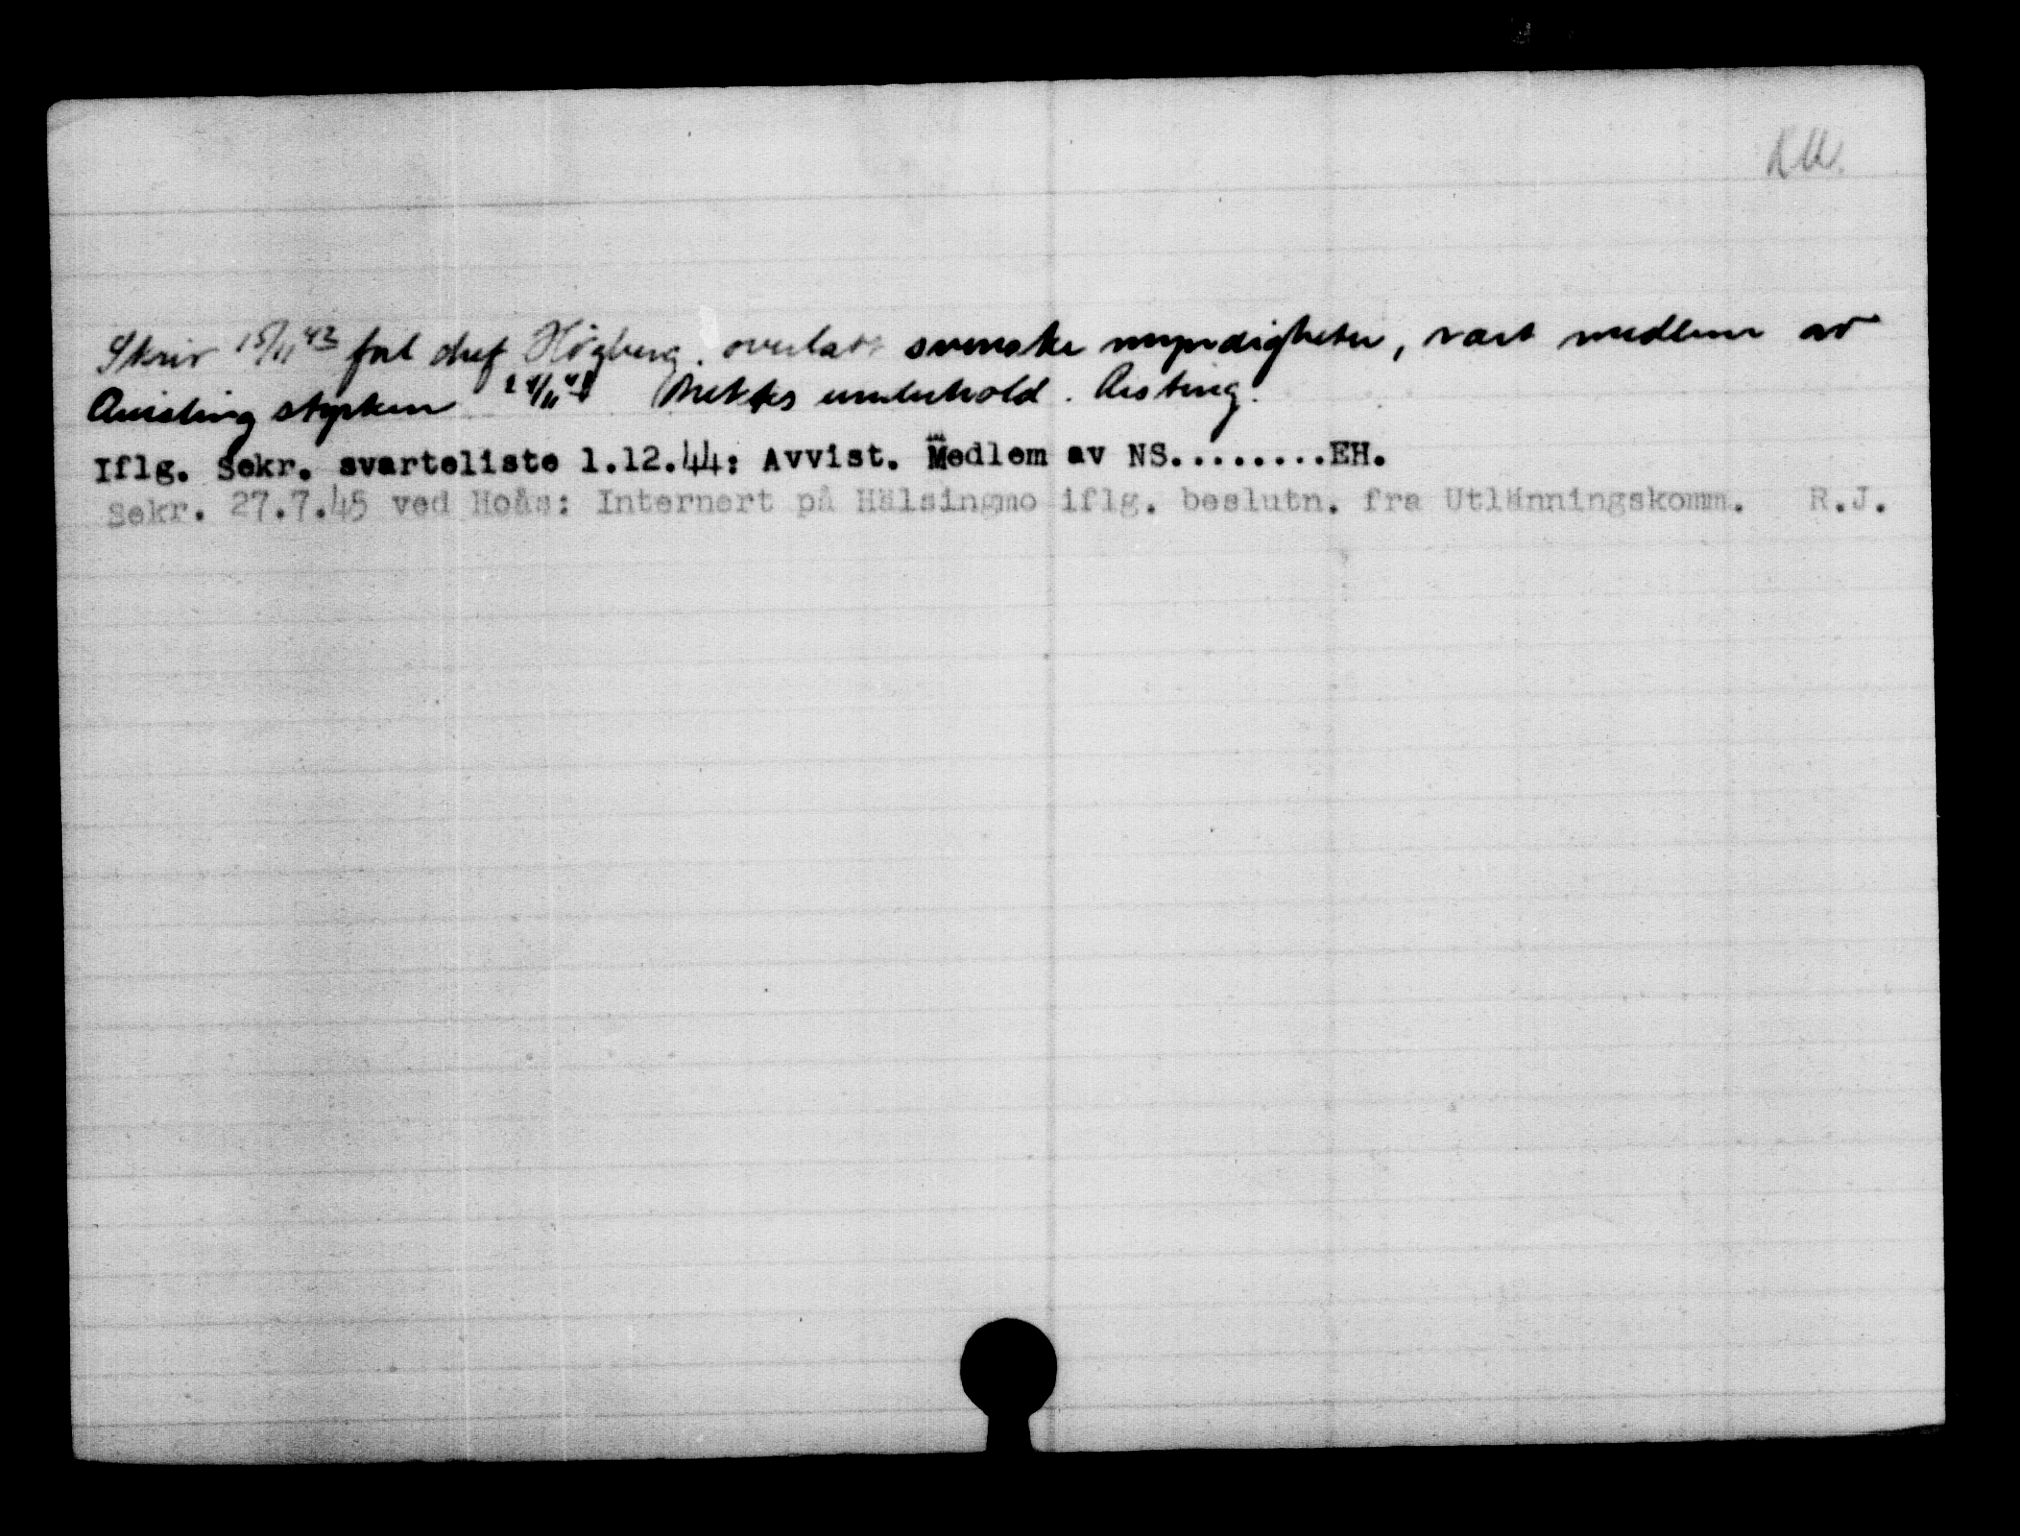 Skriv 15/11 43 forl chef Högberg. overlatt svenske myndigheter, vært medlem av
Quisling styrken 24/11 43 Nektes underhold.
Iflg. Sekr. svarteliste 1.12.44: Avvist. Medlem av NS........EH.
Sekr. 27.7.45 ved Hoås: Internert på Hälsingmo iflg. beslutn. fra Utlänningskomm. R.J.